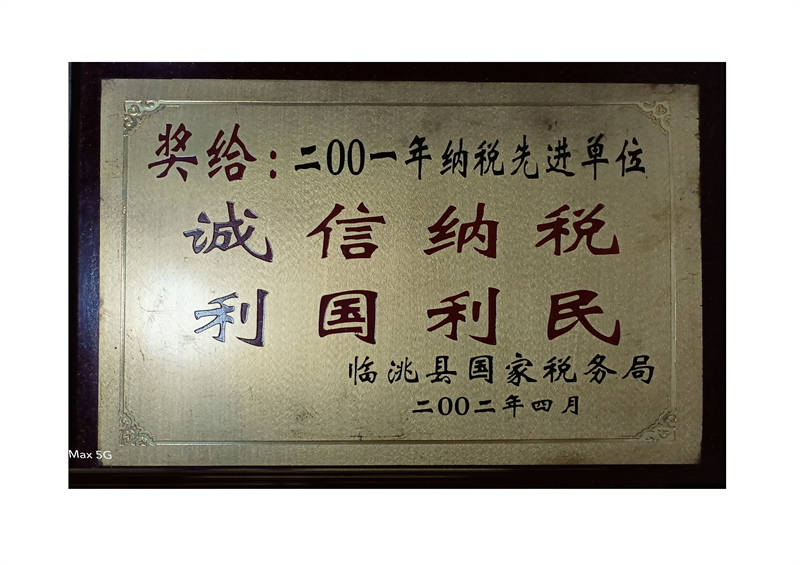 奖给：二00一年纳税先进单位
诚信纳税
利国利民
临洮县国家税务局
二00二年四月
Max 5G